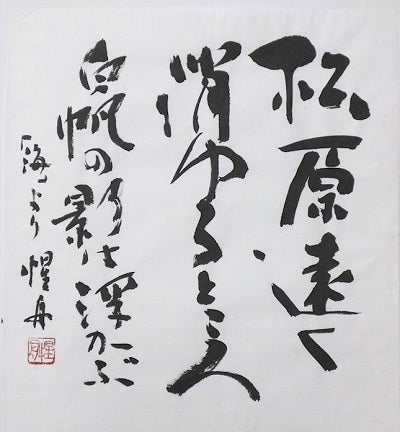 松原遠く
消ゆるところ
白帆の影は浮かぶ
「海」より 惺舟